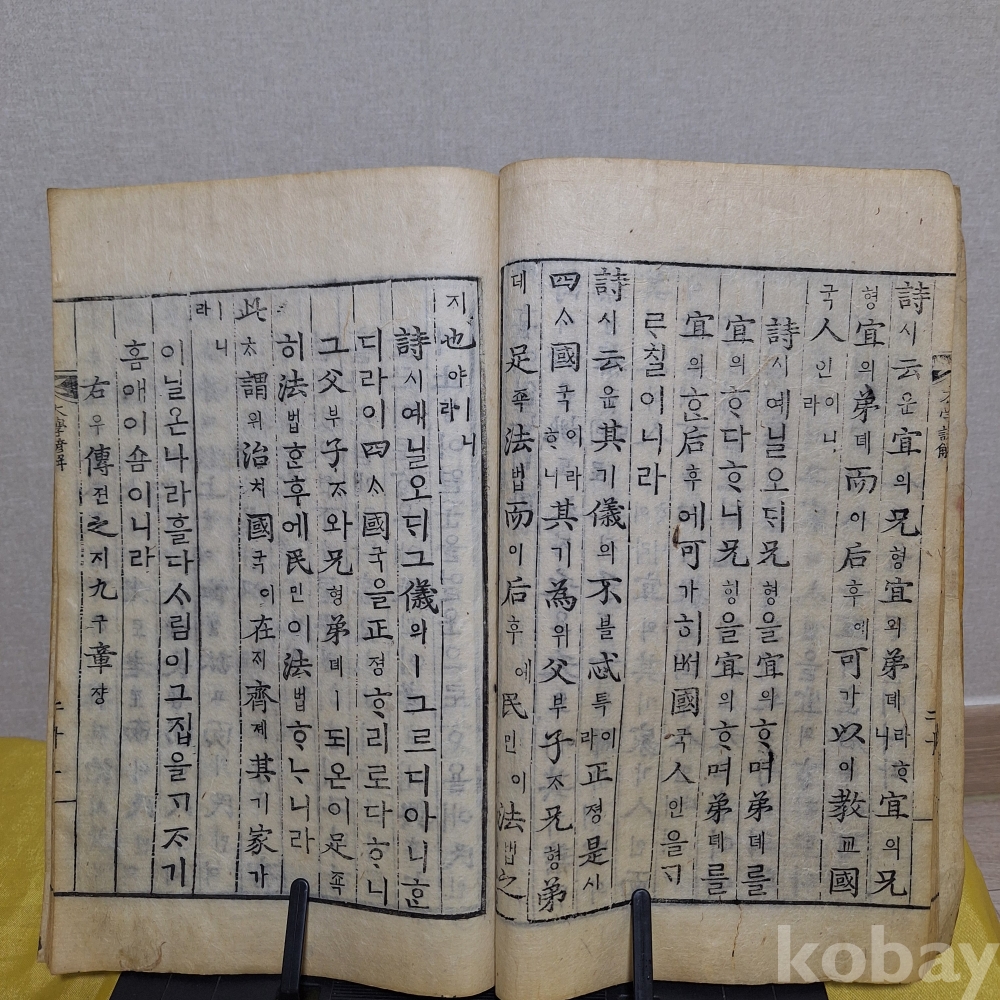 大學諺解 二十
詩시云운宜의兄형宜의弟뎨라ᄒᆞ니宜의兄
형宜의弟뎨而이后후에可가以이敎교國
국人인이니라
詩시예닐오ᄃᆡ兄형을宜의ᄒᆞ며弟뎨를
宜의ᄒᆞ다ᄒᆞ니兄형을宜의ᄒᆞ며弟뎨를
宜의ᄒᆞᆫ后후에可가히ᄡᅥ國국人인을ᄀᆞ
ᄅᆞ칠이니라
詩시云운其기儀의不블忒특이라正졍是시
四ᄉᆞ國국이라ᄒᆞ니其기為위父부子ᄌᆞ兄형弟
뎨ㅣ足죡法법而이后후에民민이法법之
지也야ㅣ니라
詩시예닐오ᄃᆡ그儀의ㅣ그르디아니ᄒᆞᆫ
디라이四ᄉᆞ國국을正졍ᄒᆞ리로다ᄒᆞ니
그父부子ᄌᆞ와兄형弟뎨ㅣ되온이足죡
히法법ᄒᆞᆫ후에民민이法법ᄒᆞᄂᆞ니라
此ᄎᆞ謂위治치國국이在ᄌᆡ齊졔其기家가
ㅣ니라
이닐온나라흘다ᄉᆞ림이그집을ᄀᆞᄌᆞ기
홈애이숌이니라
右우傳뎐之지九구章쟝
大學諺解 二十一
kobay